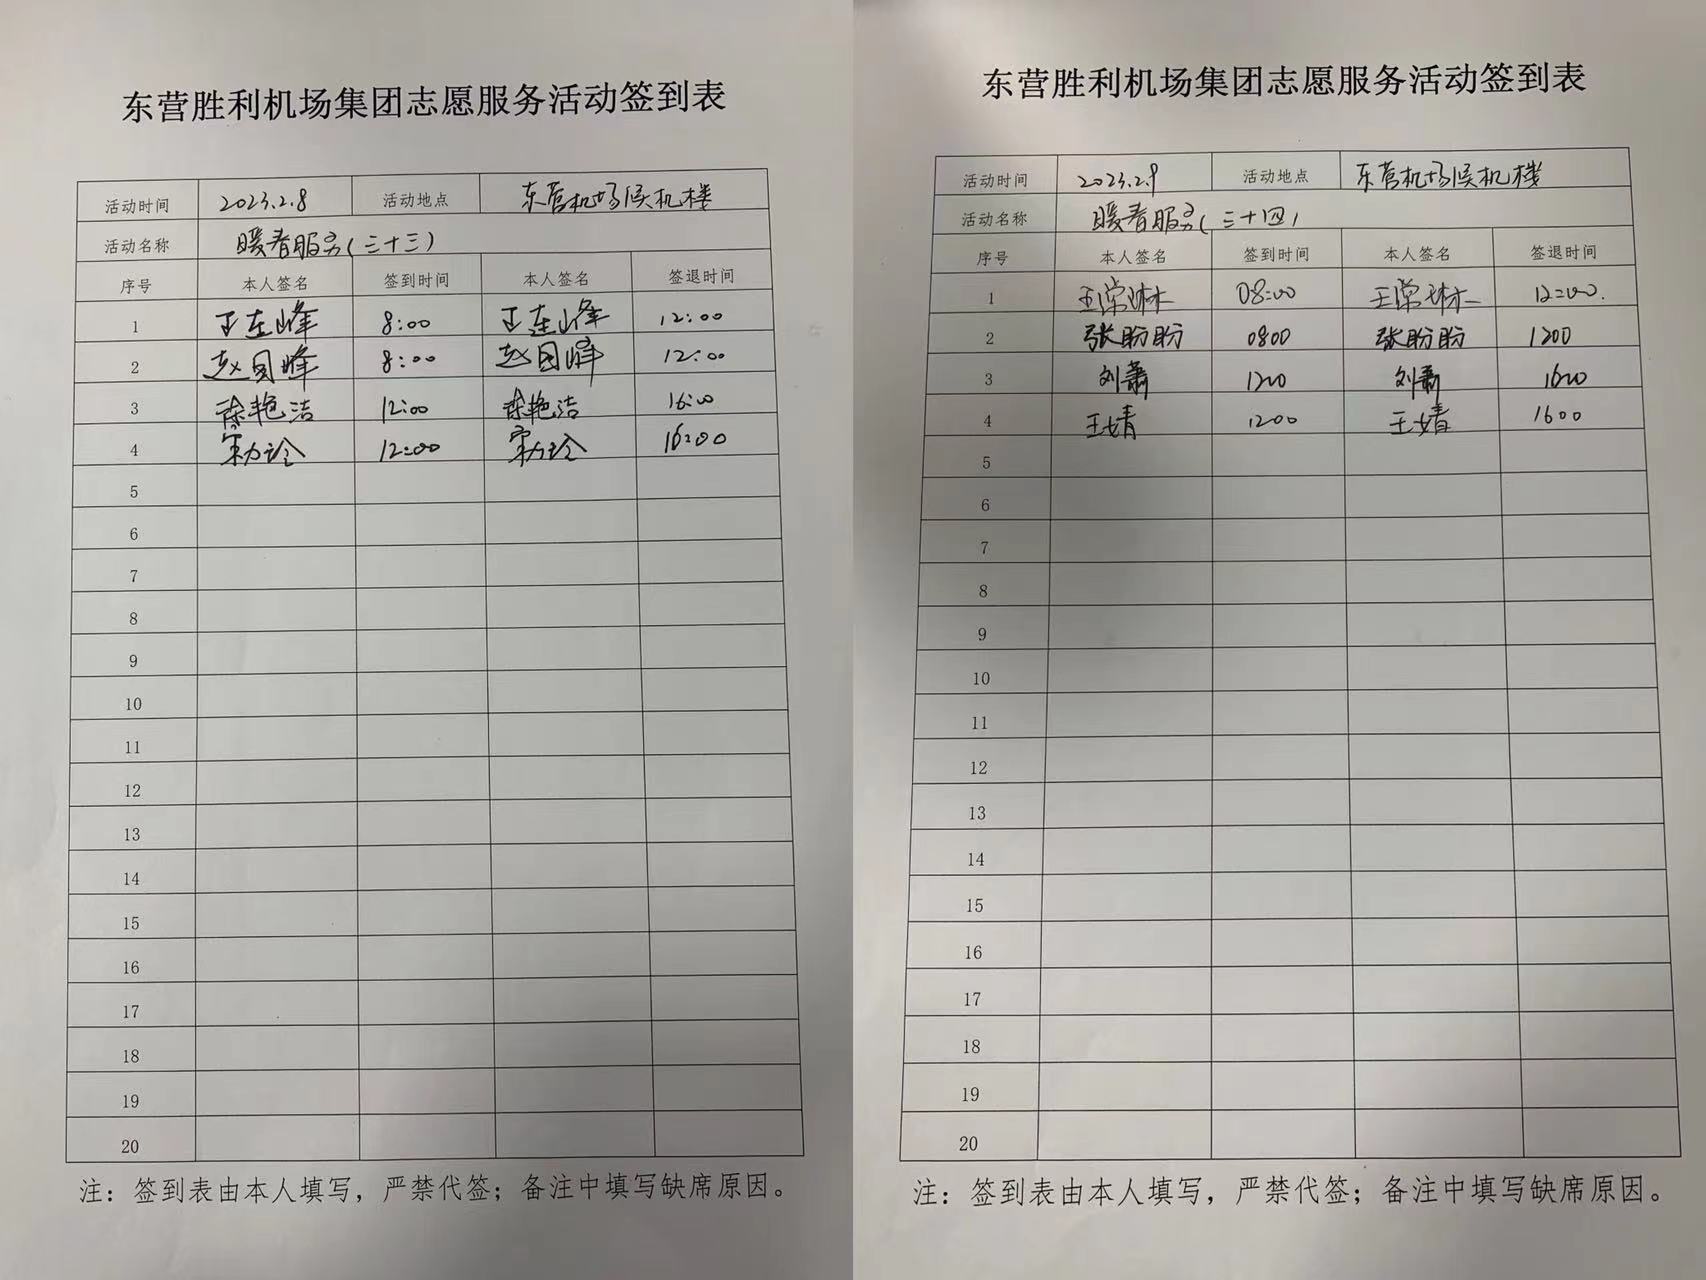 东营胜利机场集团志愿服务活动签到表
活动时间 2023.2.8 活动地点 东营机场候机楼
活动名称 暖春服务(三十三)
序号 本人签名 签到时间 本人签名 签退时间
1 王在峰 8:00 王在峰 12:00
2 赵国峰 8:00 赵国峰 12:00
3 徐艳洁 12:00 徐艳洁 16:00
4 12:00 16:00
5
6
7
8
9
10
11
12
13
14
15
16
17
18
19
20
注：签到表由本人填写，严禁代签；备注中填写缺席原因。
东营胜利机场集团志愿服务活动签到表
活动时间 2023.2.9 活动地点 东营机场候机楼
活动名称 暖春服务(三十四)
序号 本人签名 签到时间 本人签名 签退时间
1 王常琳 08:00 王常琳 12:00.
2 张盼盼 0800 张盼盼 1200
3 刘萧 1200 刘萧 1600
4 王婧 1200 王婧 1600
5
6
7
8
9
10
11
12
13
14
15
16
17
18
19
20
注：签到表由本人填写，严禁代签；备注中填写缺席原因。